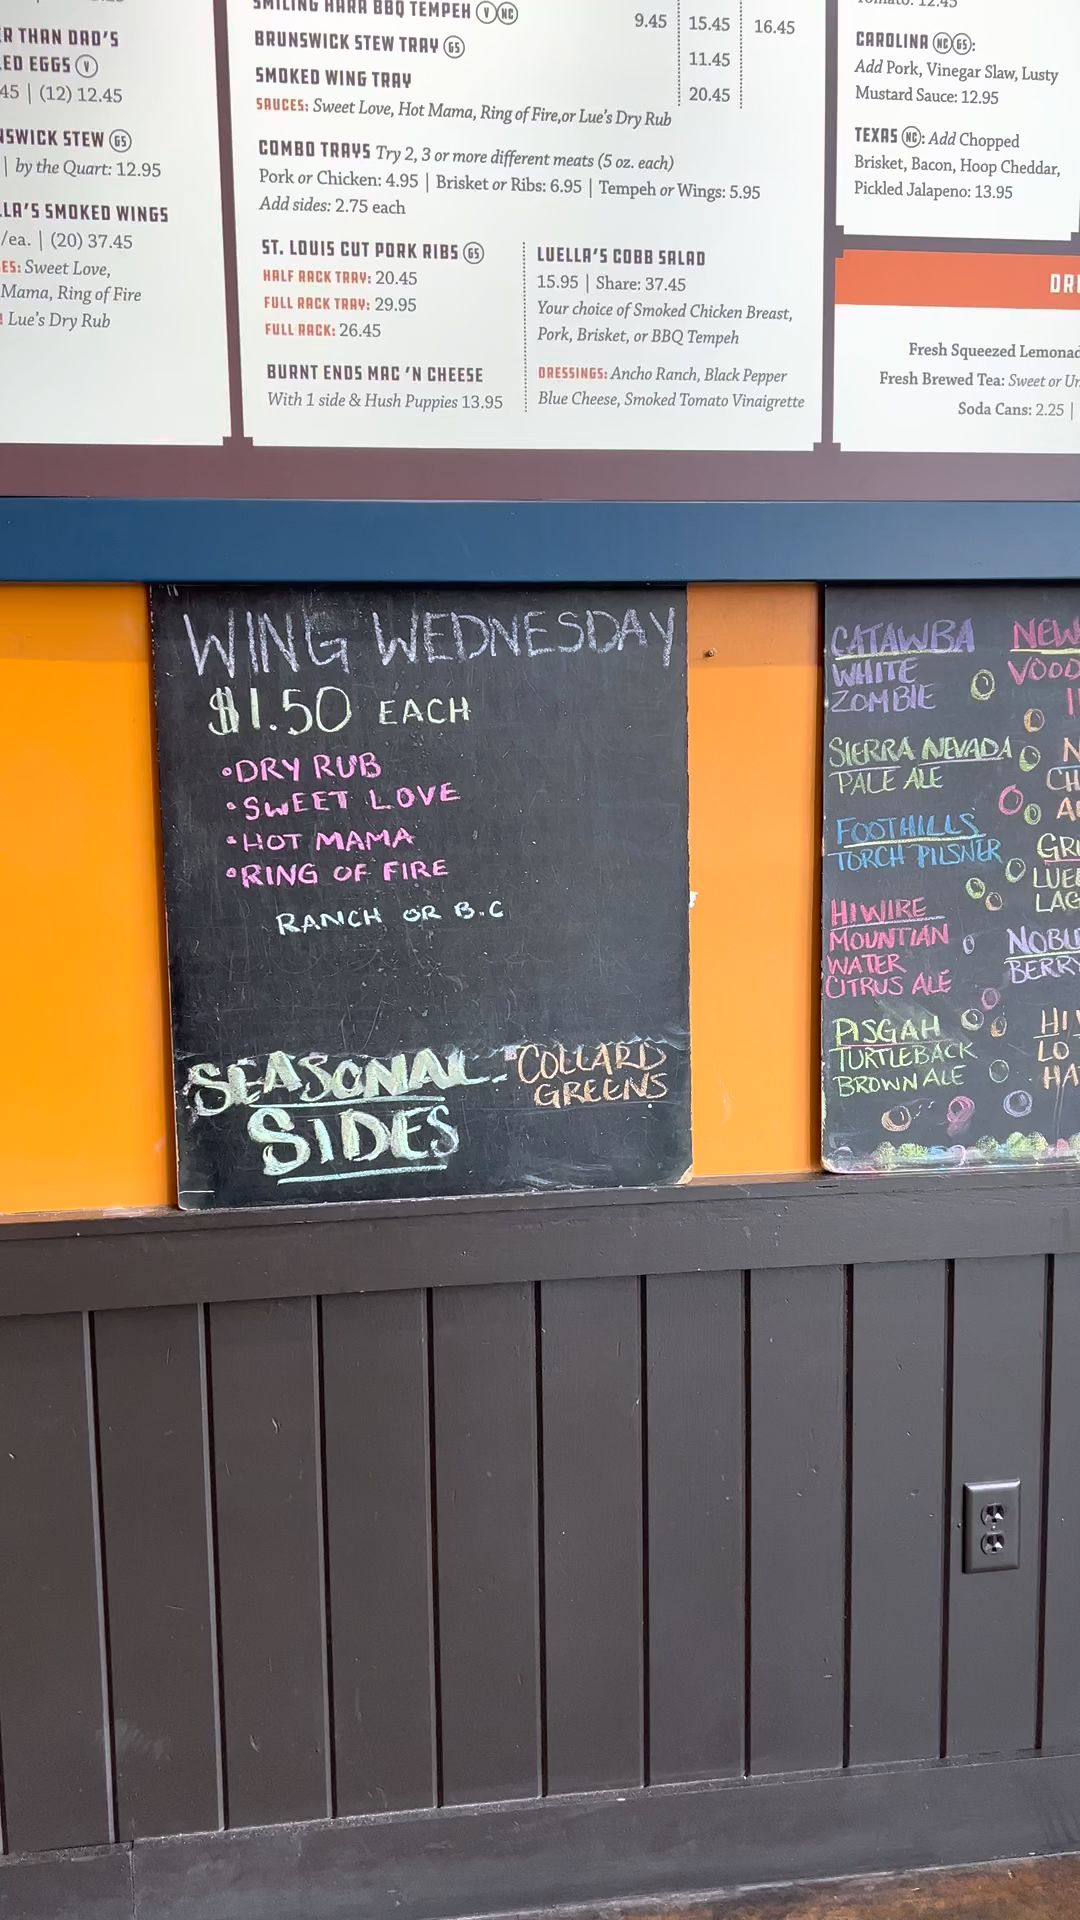 R THAN DAD'S
ED EGGS V
45 | (12) 12.45
NSWICK STEW GS
| by the Quart: 12.95
LLA'S SMOKED WINGS
/ea. | (20) 37.45
ES: Sweet Love,
Mama, Ring of Fire
Lue's Dry Rub
SMILING HARA BBQ TEMPEH V NC 9.45 15.45 16.45
BRUNSWICK STEW TRAY GS 11.45
SMOKED WING TRAY 20.45
SAUCES: Sweet Love, Hot Mama, Ring of Fire,or Lue's Dry Rub
COMBO TRAYS Try 2, 3 or more different meats (5 oz. each)
Pork or Chicken: 4.95 | Brisket or Ribs: 6.95 | Tempeh or Wings: 5.95
Add sides: 2.75 each
ST. LOUIS CUT PORK RIBS GS
HALF RACK TRAY: 20.45
FULL RACK TRAY: 29.95
FULL RACK: 26.45
BURNT ENDS MAC 'N CHEESE
With 1 side & Hush Puppies 13.95
LUELLA'S COBB SALAD
15.95 | Share: 37.45
Your choice of Smoked Chicken Breast,
Pork, Brisket, or BBQ Tempeh
DRESSINGS: Ancho Ranch, Black Pepper
Blue Cheese, Smoked Tomato Vinaigrette
Tomato: 12.45
CAROLINA NC GS:
Add Pork, Vinegar Slaw, Lusty
Mustard Sauce: 12.95
TEXAS NC: Add Chopped
Brisket, Bacon, Hoop Cheddar,
Pickled Jalapeno: 13.95
DRI
Fresh Squeezed Lemonad
Fresh Brewed Tea: Sweet or Un
Soda Cans: 2.25 |
WING WEDNESDAY
$1.50 EACH
•DRY RUB
•SWEET LOVE
•HOT MAMA
•RING OF FIRE
RANCH OR B.C
SEASONAL
SIDES
COLLARD
GREENS
CATAWBA
WHITE
ZOMBIE
SIERRA NEVADA
PALE ALE
FOOTHILLS
TORCH PILSNER
HI WIRE
MOUNTIAN
WATER
CITRUS ALE
PISGAH
TURTLEBACK
BROWN ALE
NEW
VOOD
I
N
CH
A
GR
LUE
LAG
NOBL
BERRY
HI W
LO
HA